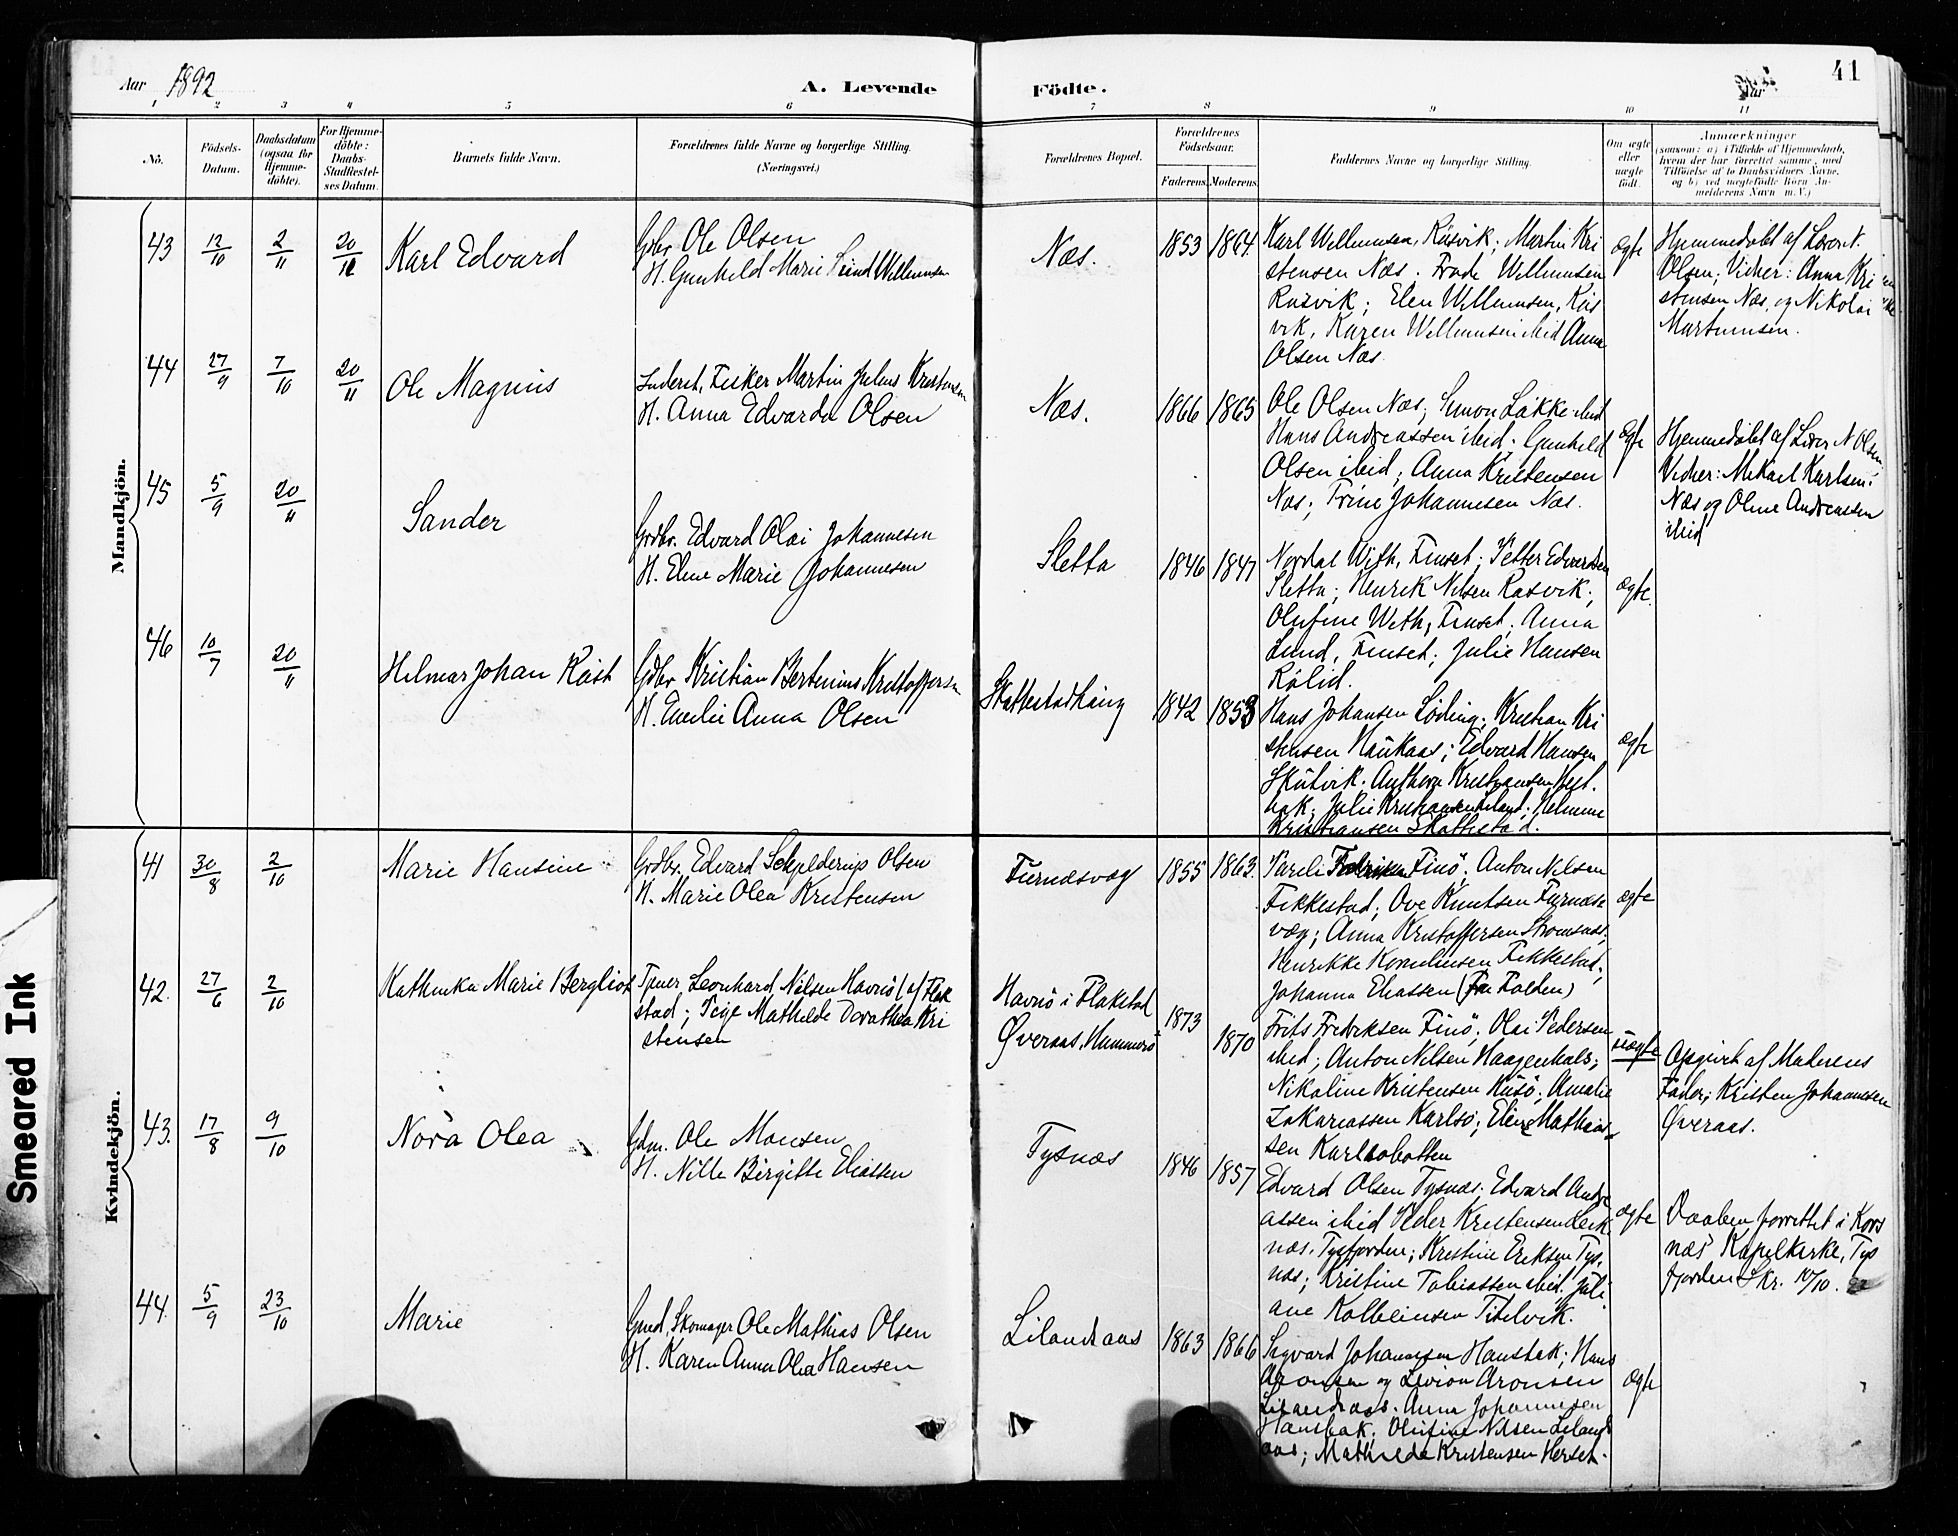 Aar 1892
A. Levende
Födte.
Aar
41
1 2 3 4 5 6 7 8 9 10 11
No.
Födsels-Datum.
Daabsdatum (ogsaa for Hjemme-döbte).
For Hjemme-döbte: Daabs-Stadfæstel-ses Datum.
Barnets fulde Navn.
Forældrenes fulde Navne og borgerlige Stilling. (Næringsvei.)
Forældrenes Bopæl.
Forældrenes Födselsaar.
Faderens. Moderens.
Faddernes Navne og borgerlige Stilling.
Om ægte eller uægte födt.
Anmærkninger
(saasom: a) i Tilfælde af Hjemmedaab,
hvem der har forrettet samme, med
Tilföielse af to Daabsvidners Navne,
og b) ved uægtefödte Börn An-
melderens Navn m. V.)
Mandkjön.
43 12/10 2/11 20/11 Karl Edvard
Gdbr. Ole Olsen
H. Gunhild Marie Willumsen
Næs. 1853 1864
Karl Willumsen, Räsvik; Martin Kri
stensen Næs. Willumsen
Räsvik; Elen Willumsen, Räs
vik, Karen Willumsen ibid Anna
Olsen Næs.
ægte
Hjemmedöbt af Lærer N.
Olsen; Vidner: Anna Kri
stensen Næs, og Nikolai
Martinusen.
44 27/9 7/10 20/11 Ole Magnus
Inderst, Fisker Martin Julius Kristensen
H. Anna Edvarda Olsen
Næs. 1866 1865
Ole Olsen Næs; Simon Lökke ibid
Hans Andreassen ibid; Gunhild
Olsen ibid, Anna Kristensen
Næs; Trine Johannesen Næs.
ægte
Hjemmedöbt af Lærer N Olsen
Vidner: Mikael Karlsen
Næs og Oline Andreassen
ibid
45 5/9 20/11 Sander
Grdbr. Edvard Olai Johannesen
H. Eline Marie Johannesen
Sletta 1846 1847
Nordal With, Finset; Petter Edvardsen
Sletta; Henrik Nilsen Rasvik;
Olufine With, Finset; Anna
Lund, Finset; Julie Hansen
Rölid.
ægte.
46 10/7 20/11 Hilmar Johan Räst
Gdbr Kristian Bertinius Kristoffersen
H. Emilie Anna Olsen
Skattestadhaug 1842 1853
Hans Johansen Löding; Kristian Kri
stensen Haukaas; Edvard Hansen
Skutvik. Anthon Kristiansen
Julie Kristiansen
Kristiansen Skattestad.
ægte
Kvindekjön.
41 30/8 2/10 Marie Hansine
Grdbr. Edvard Schjelderup Olsen
H. Marie Olea Kristensen
Furnæsvaag 1855 1863.
Fredriksen Finö; Anton Nilsen
Fikkestad; Ove Knutsen Furnæs
vaag; Anna Kristoffersen Stromsnæs;
Henrikke Korneliusen Fikkestad;
Johanna Eliassen (fra Folden)
ægte
42. 27/6 2/10 Kathinka Marie Bergliot
Tjener Leonhard Nilsen Havnö (af Flak
stad; Pige Mathilde Dorathea Kri
stensen
Havnö i Flakstad
Øveraas, Hammerö
1873 1870
Frits Fredriksen Finö; Olai Pedersen
ibid; Anton Nilsen Haagenhals;
Nikoline Kristensen Rusö; Amalie
Zakariassen Karlsö; Eline Mathias
sen Karlsobotten
uægte
Opgivet af Moderens
Fader; Kristen Johannesen
Øveraas.
43. 17/8 9/10 Nora Olea
Gdm. Ole Monsen
H. Nille Birgitte Eliassen
Tysnæs 1846 1857
Edvard Olsen Tysnæs; Edvard Andre
assen ibid Peder Kristensen Leik
næs, Tysfjorden; Kristine Eriksen Tys
næs; Kristine Tobiassen ibid; Juli
ane Kolbeinsen Tiltvik.
ægte
Daaben forrettet i Kors
næs Kapelkirke, Tys
fjorden Skr. 10/10.
44. 5/9 23/10 Marie
Gmd. Skomager Ole Mathias Olsen
H. Karen Anna Olea Hansen
Lilandsaas 1863 1866
Sigvard Johannesen Hansbak; Hans
Aronsen og Levion Aronsen
Lilandsaas. Anna Johannesen
Hansbak; Olufine Nilsen Lilands
aas; Mathilde Kristensen Herset.
ægte
Smeared Ink